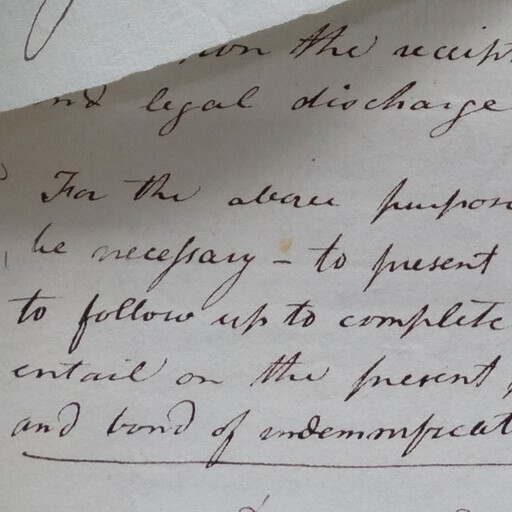 on the receipt
and legal discharge
For the above purpose
be necessary - to present
to follow up to complete
entail on the present
and bond of indemnificat